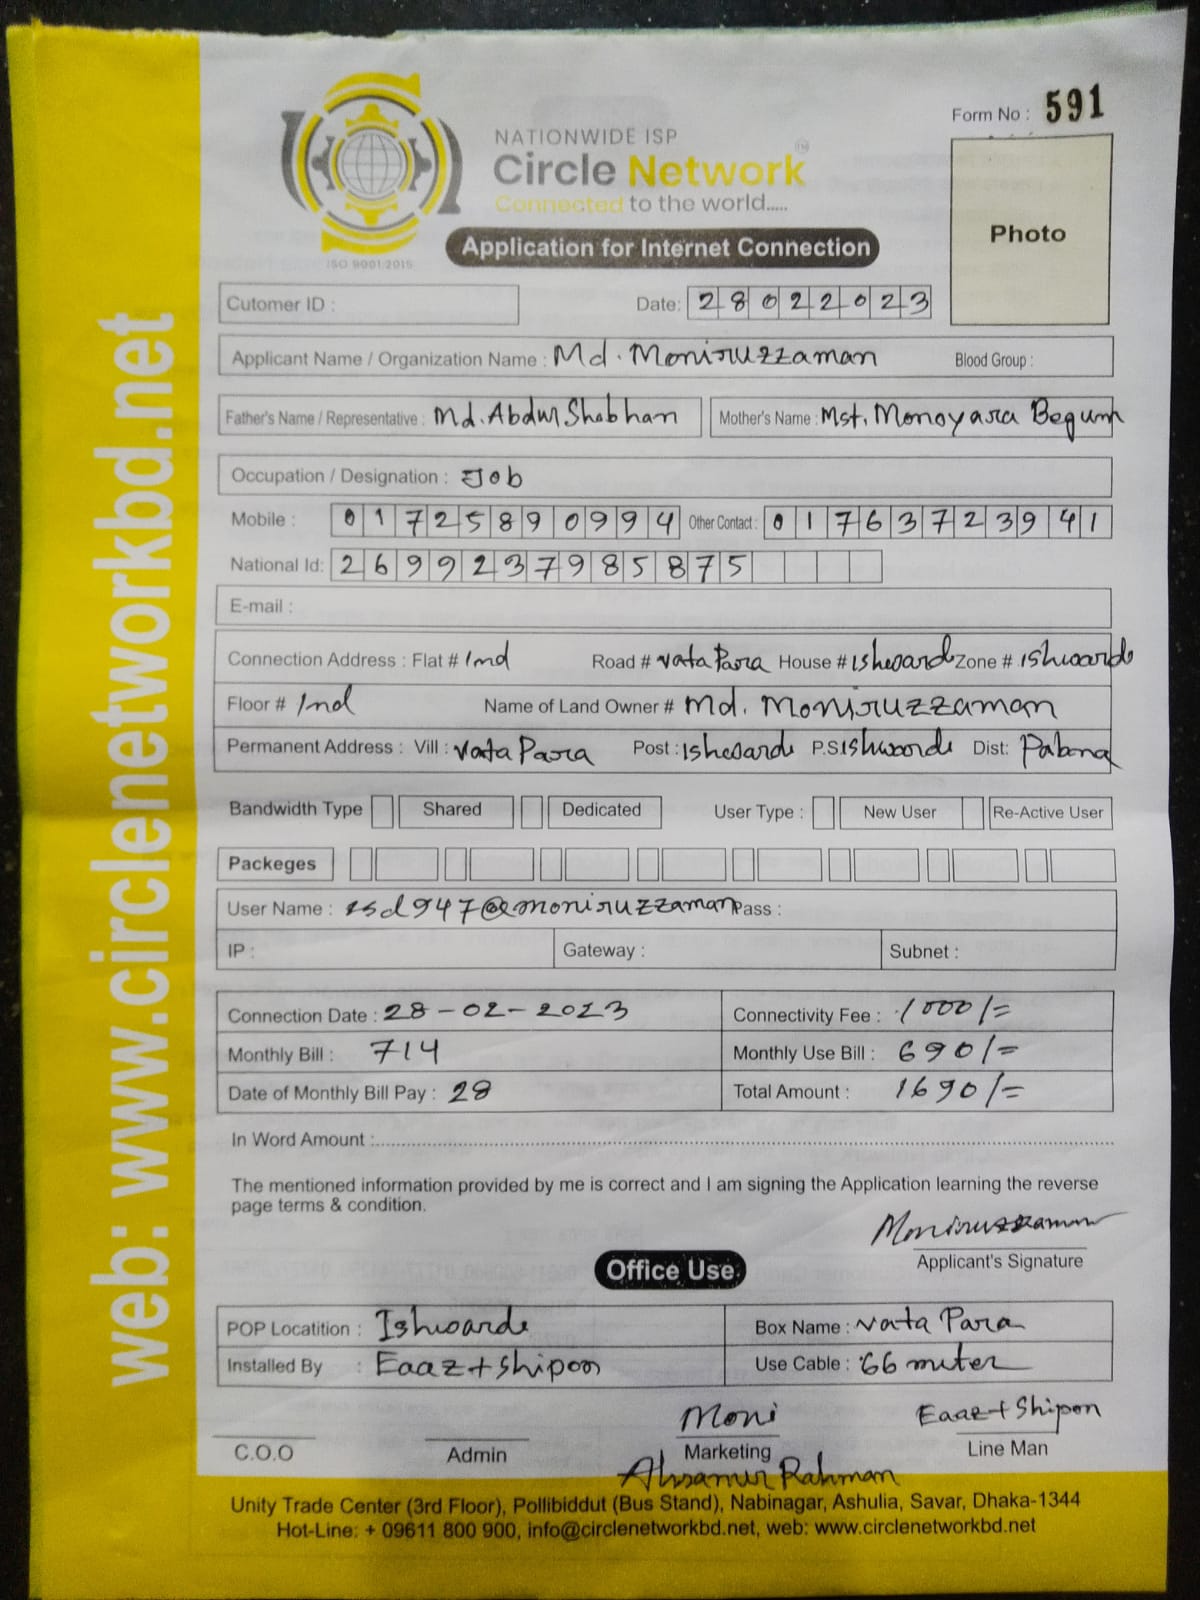 Form No : 591
NATIONWIDE ISP
Circle Network
Connected to the world.....
ISO 9001:2015
Application for Internet Connection
Photo
Cutomer ID :
Date: 28022023
Applicant Name / Organization Name : Md. Moniruzzaman Blood Group :
Father's Name / Representative : Md. Abdur Shobhan Mother's Name : Mst. Monoyara Begum
Occupation / Designation : Job
Mobile : 01725890994 Other Contact : 01763723941
National Id: 2699237985875
E-mail :
Connection Address : Flat # 1nd Road # vata Para House # ishwardi Zone # ishwardi
Floor # 1nd Name of Land Owner # Md. Moniruzzaman
Permanent Address : Vill : vata Para Post : ishwardi P.S. ishwardi Dist: Pabna
Bandwidth Type Shared Dedicated User Type : New User Re-Active User
Packeges
User Name : isd947@moniruzzaman Pass :
IP : Gateway : Subnet :
Connection Date : 28-02-2023 Connectivity Fee : 1000/=
Monthly Bill : 714 Monthly Use Bill : 690/=
Date of Monthly Bill Pay : 28 Total Amount : 1690/=
In Word Amount :
The mentioned information provided by me is correct and I am signing the Application learning the reverse
page terms & condition.
Moniruzzaman
Applicant's Signature
Office Use
POP Locatition : Ishwardi Box Name : vata Para
Installed By : Eaaz + Shipon Use Cable : 66 miter
Moni Eaaz + Shipon
C.O.O Admin Marketing Line Man
Ahsanur Rahman
Unity Trade Center (3rd Floor), Pollibiddut (Bus Stand), Nabinagar, Ashulia, Savar, Dhaka-1344
Hot-Line: + 09611 800 900, info@circlenetworkbd.net, web: www.circlenetworkbd.net
web: www.circlenetworkbd.net